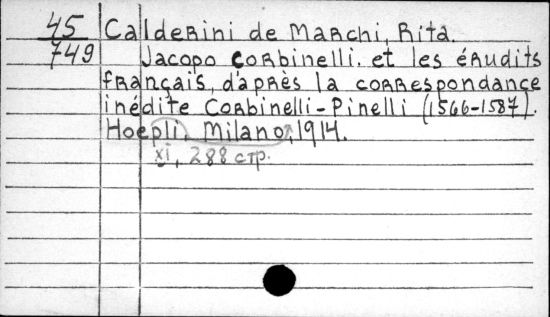 45 Calderini de Marchi, Rita.
749 Jacopo Corbinelli. et les érudits
français, d'après la correspondance
inédite Corbinelli-Pinelli (1566-1587).
Hoepli, Milano, 1914.
xi, 288 стр.